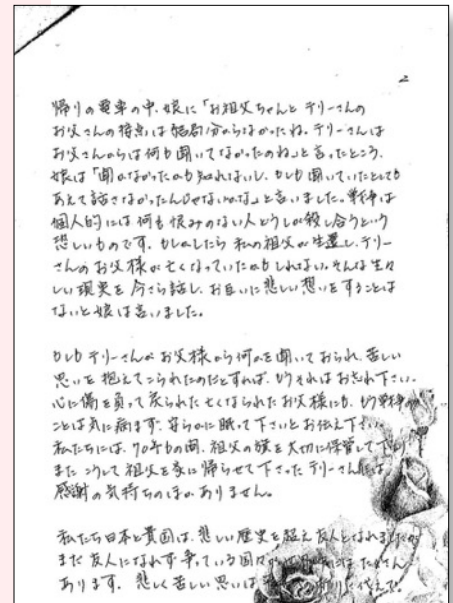 2
帰りの電車の中、娘に「お祖父ちゃんとテリーさんの
お父さんの接点は結局分からなかったね。テリーさんは
お父さんからは何も聞いてなかったのね」と言ったところ、
娘は「聞かなかったかも知れないし、もしも聞いていたとしても
あえて話さなかったんじゃないかな」と言いました。戦争は
個人的には何も恨みのない人どうしが殺し合うという
悲しいものです。もしかしたら私の祖父が生還し、テリー
さんのお父様が亡くなっていたかもしれない。そんな生々
しい現実を今さら話し、お互いに悲しい想いをすることは
ないと娘は言いました。
もしもテリーさんがお父様から何かを聞いておられ、苦しい
思いを抱えてこられたのだとすれば、もうそれはお忘れ下さい。
心に傷を負って戻られた亡くなられたお父様にも、もう戦争の
ことは気に病まず、安らかに眠って下さいとお伝え下さい。
私たちには、70年もの間、祖父の旗を大切に保管して下さり
また こうして祖父を家に帰らせて下さったテリーさんには
感謝の気持ちのほかありません。
私たち日本と貴国は、悲しい歴史を超え友人となれましたが
まだ友人になれず争っている国々が たくさん
あります。悲しく苦しい思いは 代えて、